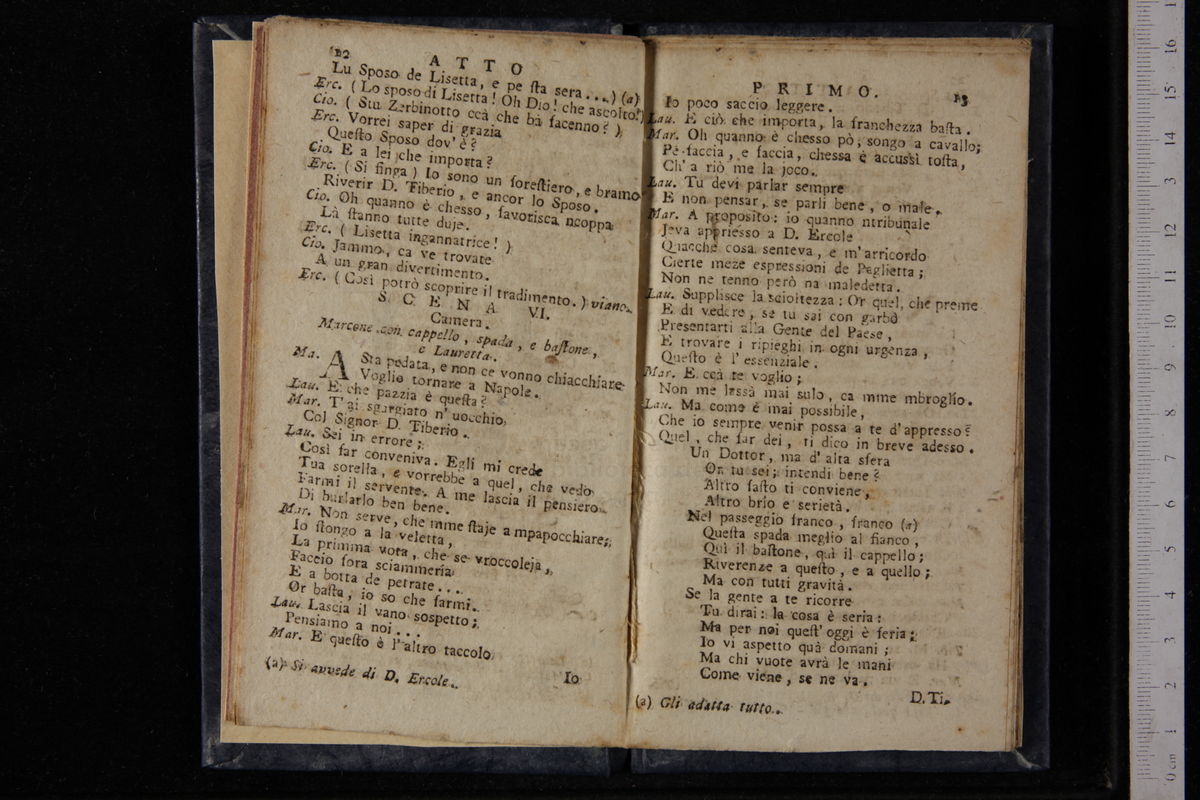 12
ATTO
Lu Sposo de Lisetta, e pe sta sera . . .) (a)
Erc. ( Lo sposo di Lisetta! Oh Dio! che ascolto!)
Cio. ( Stu Zerbinotto ccà che bà facenno? )
Erc. Vorrei saper di grazia
Questo Sposo dov' è?
Cio. E a lei che importa?
Erc. ( Si finga ) Io sono un forestiero, e bramo
Riverir D. Tiberio, e ancor lo Sposo.
Cio. Oh quanno è chesso, favorisca ncoppa
Là stanno tutte duje.
Erc. ( Lisetta ingannatrice! )
Cio. Jammo, ca ve trovate
A un gran divertimento.
Erc. ( Così potrò scoprire il tradimento. ) viano.
SCENA VI.
Camera.
Marcone con cappello, spada, e bastone,
e Lauretta.
Ma. ASta pedata, e non ce vonno chiacchiare
Voglio tornare a Napole.
Lau. E che pazzia è questa?
Mar. T' ai sgargiato n' uocchio,
Col Signor D. Tiberio.
Lau. Sei in errore;
Così far conveniva. Egli mi crede
Tua sorella, e vorrebbe a quel, che vedo
Farmi il servente. A me lascia il pensiero
Di burlarlo ben bene.
Mar. Non serve, che mme staje ampapocchiare;
Io stongo a la veletta,
La primma vota, che se vroccoleja,
Faccio fora sciammeria
E a botta de petrate . . .
Or basta, io so che farmi.
Lau. Lascia il vano sospetto;
Pensiamo a noi . . .
Mar. E questo è l'altro taccolo
(a) Si avvede di D. Ercole.
Io
PRIMO.
13
Io poco saccio leggere.
Lau. E ciò che importa, la franchezza basta.
Mar. Oh quanno è chesso pò, songo a cavallo;
Pe faccia, e faccia, chessa è accussì tosta,
Ch' a riò me la joco.
Lau. Tu devi parlar sempre
E non pensar, se parli bene, o male.
Mar. A proposito: io quanno ntribunale
Jeva appriesso a D. Ercole
Quacche cosa senteva, e m'arricordo
Cierte meze espressioni de Paglietta;
Non ne tenno però na maledetta.
Lau. Supplisce la scioltezza: Or quel, che preme
E di vedere, se tu sai con garbo
Presentarti alla Gente del Paese,
E trovare i ripieghi in ogni urgenza,
Questo è l' essenziale.
Mar. E ccà te voglio;
Non me lassà mai sulo, ca mme mbroglio.
Lau. Ma come è mai possibile,
Che io sempre venir possa a te d'appresso?
Quel, che far dei, ti dico in breve adesso.
Un Dottor, ma d' alta sfera
Or tu sei; intendi bene?
Altro fasto ti conviene,
Altro brio e serietà.
Nel passeggio franco, franco (a)
Questa spada meglio al fianco,
Quì il bastone, quì il cappello;
Riverenze a questo, e a quello;
Ma con tutti gravità.
Se la gente a te ricorre
Tu dirai: la cosa è seria:
Ma per noi quest' oggi è feria;
Io vi aspetto quà domani;
Ma chi vuote avrà le mani
Come viene, se ne va.
(a) Gli adatta tutto.
D. Ti-